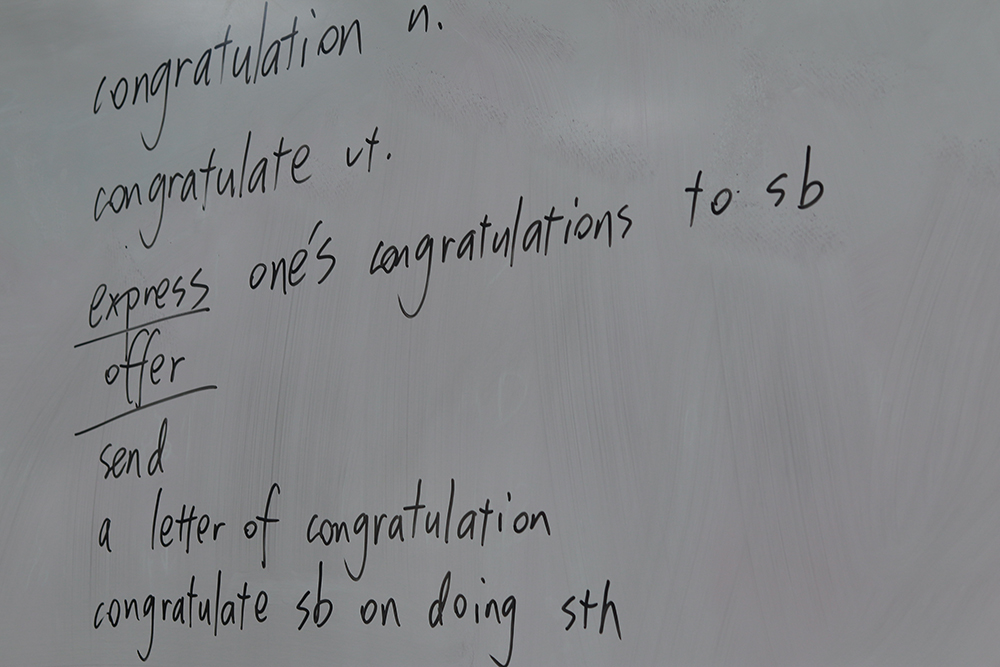 congratulation n.
congratulate vt.
express one's congratulations to sb
offer
send
a letter of congratulation
congratulate sb on doing sth